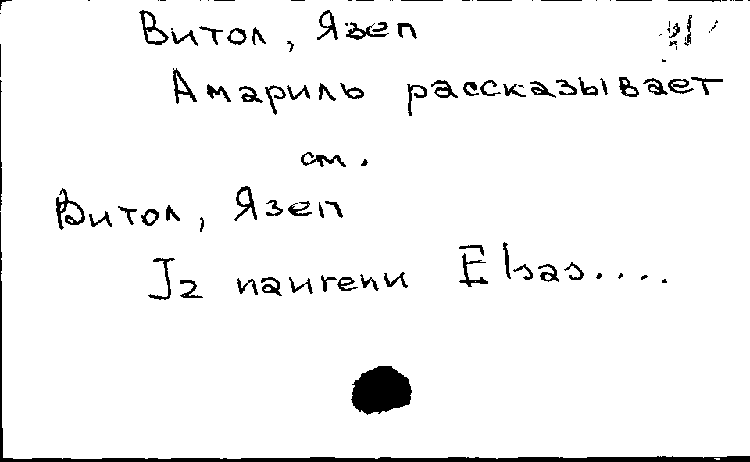 Витол, Язеп
Амариль рассказывает
см.
Витол, Язеп
Jz Elsas....